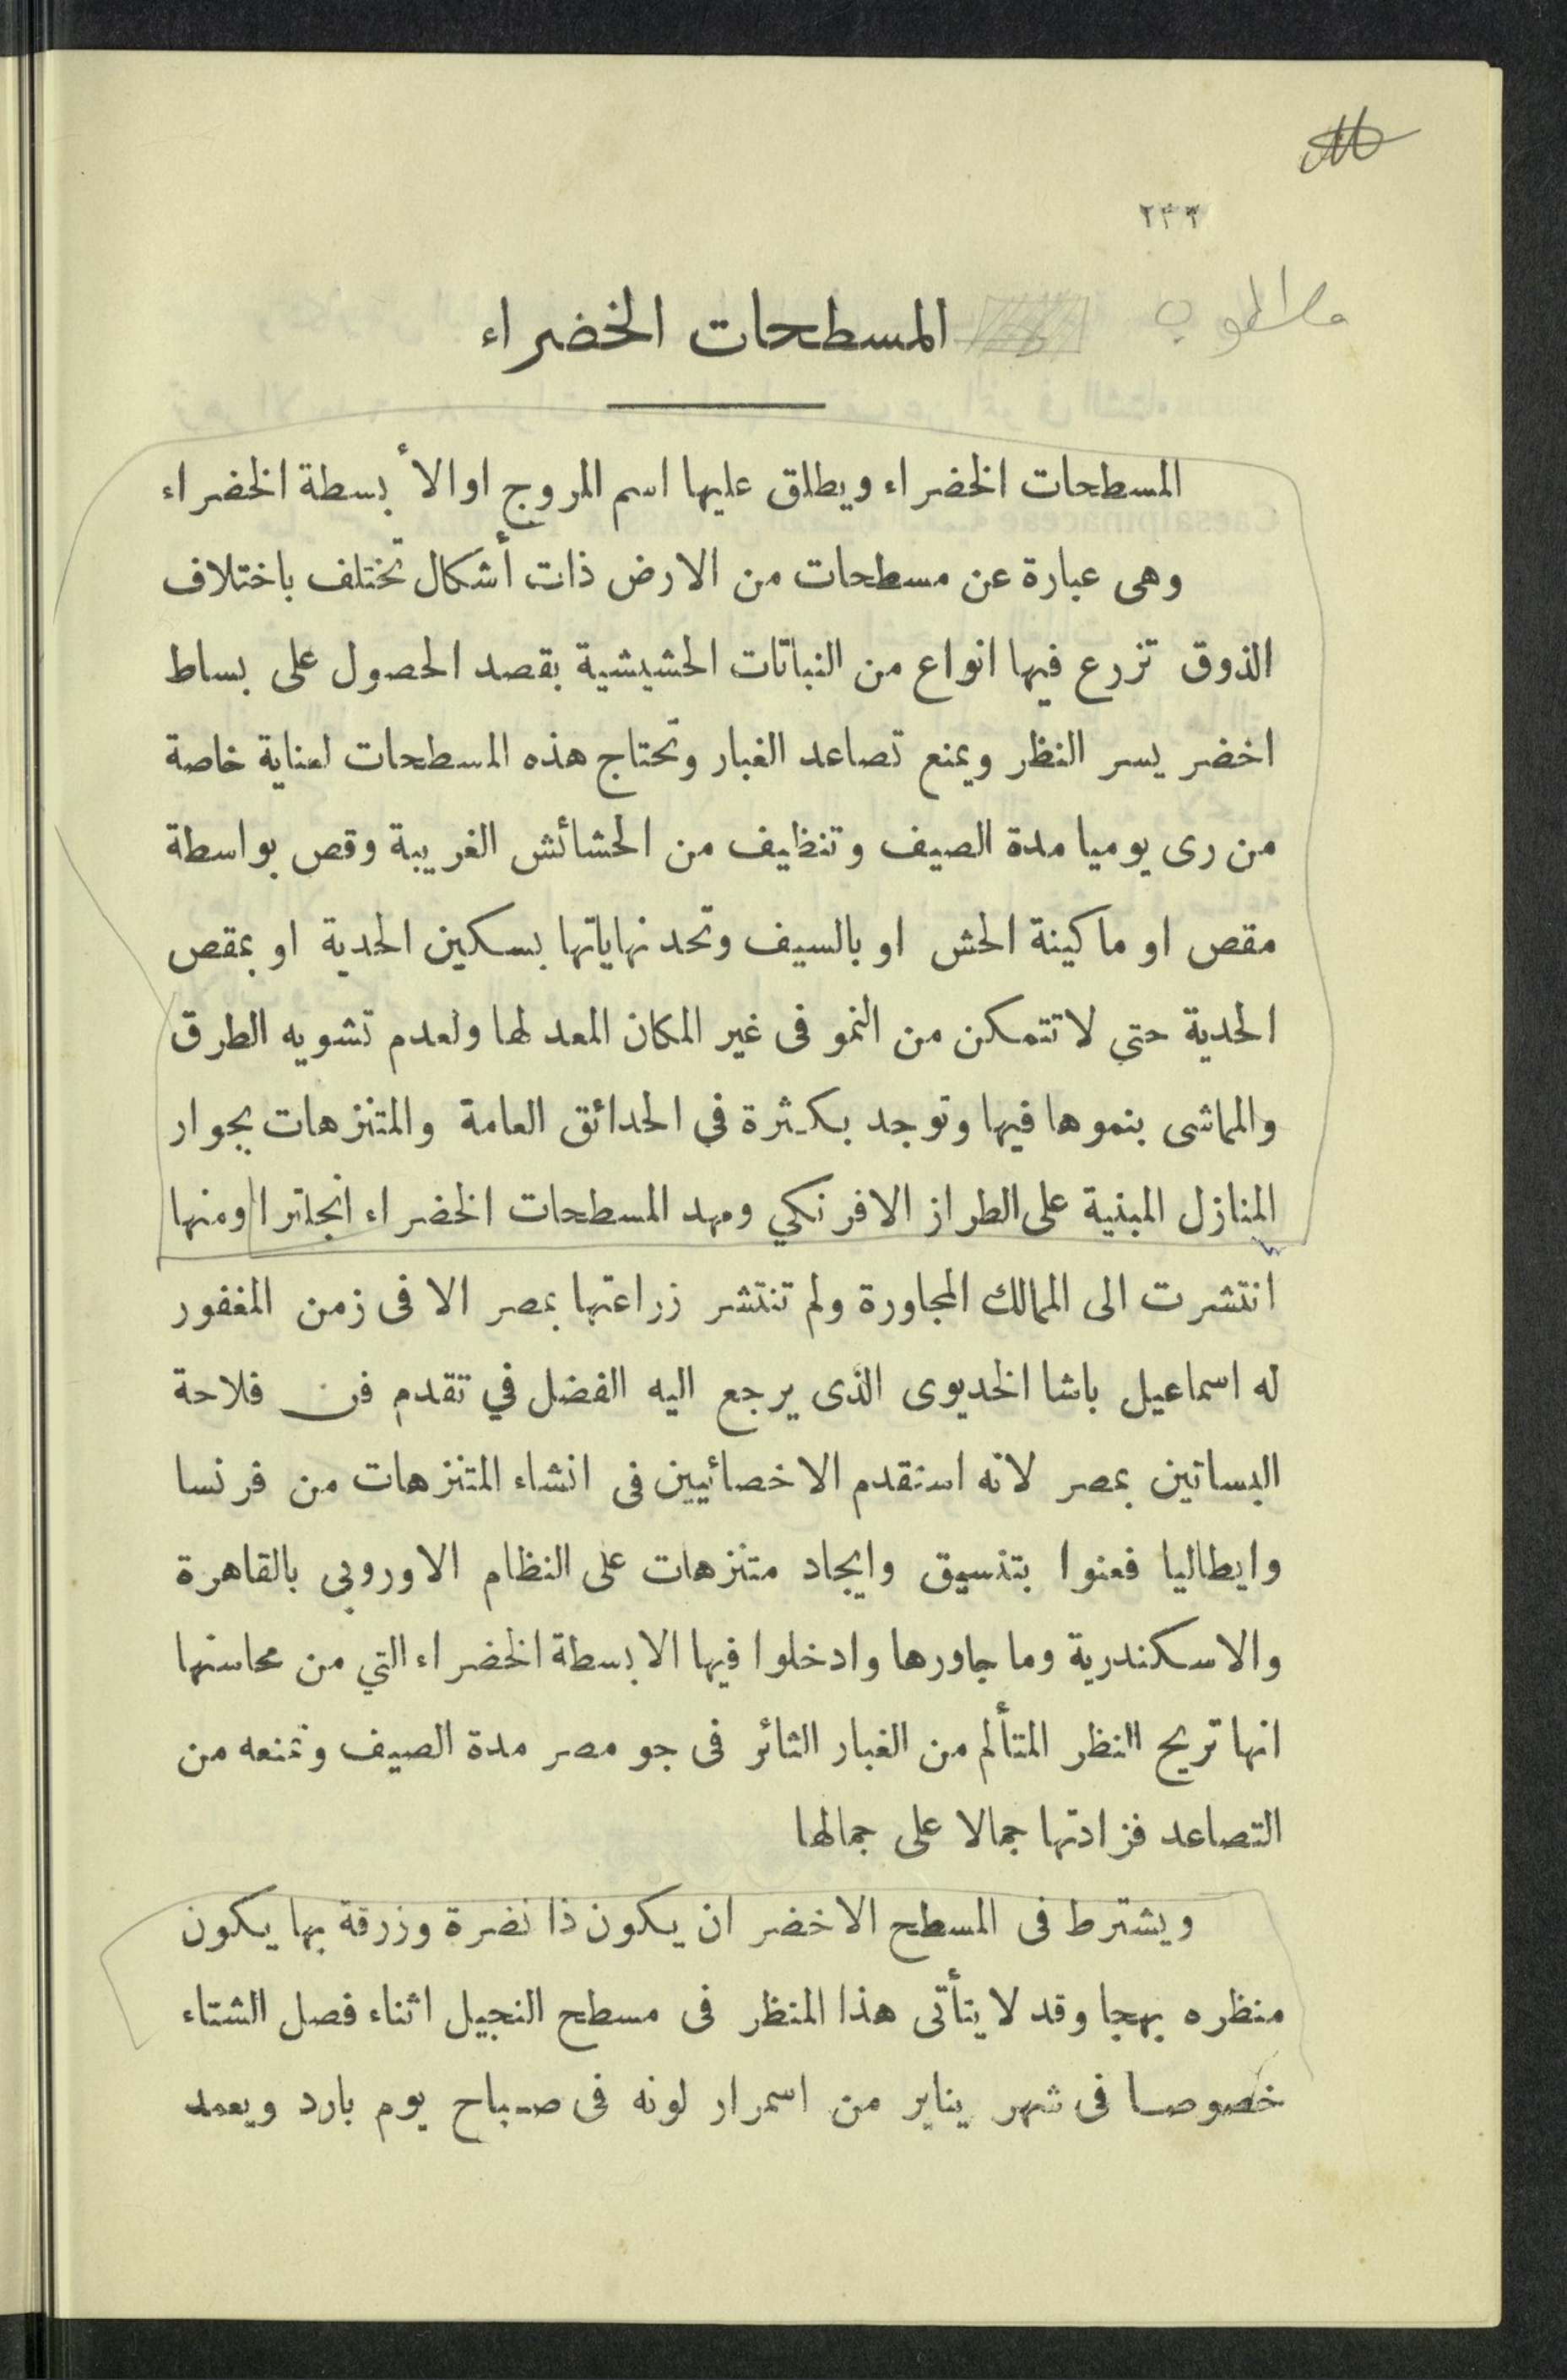 ٢٣٦
مطلوب
المسطحات الخضراء
المسطحات الخضراء ويطلق عليها اسم المروج او الأبسطة الخضراء
وهى عبارة عن مسطحات من الارض ذات أشكال تختلف باختلاف
الذوق تزرع فيها انواع من النباتات الحشيشية بقصد الحصول على بساط
اخضر يسر النظر ويمنع تصاعد الغبار وتحتاج هذه المسطحات لعناية خاصة
من رى يوميا مدة الصيف وتنظيف من الحشائش الغريبة وقص بواسطة
مقص او ماكينة الحش او بالسيف وتحد نهاياتها بسكين الحدية او بمقص
الحدية حتى لا تتمكن من النمو فى غير المكان المعد لها ولعدم تشويه الطرق
والمماشى بنموها فيها وتوجد بكثرة في الحدائق العامة والمتنزهات بجوار
المنازل المبنية على الطراز الافرنكي ومهد المسطحات الخضراء انجلترا ومنها
انتشرت الى الممالك المجاورة ولم تنتشر زراعتها بمصر الا فى زمن المغفور
له اسماعيل باشا الخديوى الذى يرجع اليه الفضل في تقدم فن فلاحة
البساتين بمصر لانه استقدم الاخصائيين فى انشاء المتنزهات من فرنسا
وايطاليا فعنوا بتنسيق وايجاد متنزهات على النظام الاوروبى بالقاهرة
والاسكندرية وما جاورها وادخلوا فيها الابسطة الخضراء التي من محاسنها
انها تريح النظر المتألم من الغبار الثائر فى جو مصر مدة الصيف وتمنعه من
التصاعد فزادتها جمالا على جمالها
ويشترط فى المسطح الاخضر ان يكون ذا نضرة وزرقة بها يكون
منظره بهجا وقد لا يتأتى هذا المنظر فى مسطح النجيل اثناء فصل الشتاء
خصوصا فى شهر يناير من اسمرار لونه فى صباح يوم بارد ويعمد